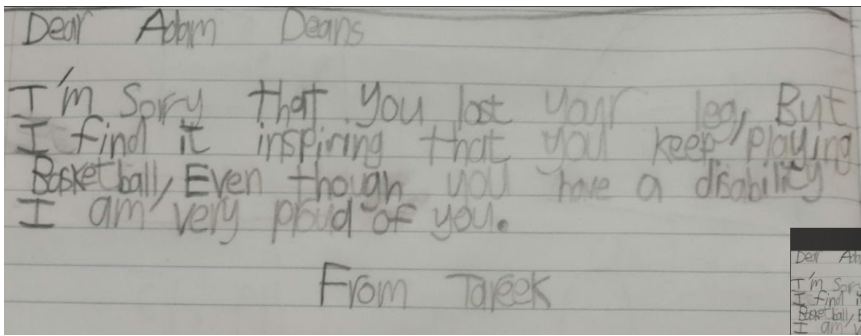 Dear Adam Deans
I'm Sorry that you lost your leg, But
I find it inspiring that you keep playing
Basketball, Even though you have a disability
I am very proud of you.
From Tareek
Dear Ada
I'm Sorr
I find i
Basketball,
I am v